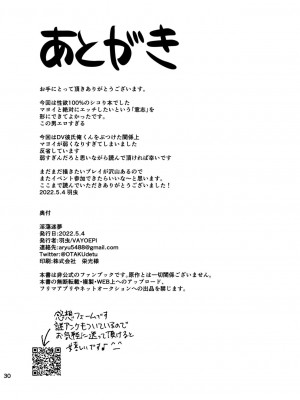 あとがき
お手にとって頂きありがとうございます。
今回は性欲100%のシコり本でした
マヨイと絶対にエッチしたいという「意志」を
形にできてよかったです。
この男エロすぎる
今回はDV彼氏俺くんをぶつけた関係上
マヨイが弱くなりすぎてしまいました
反省しています
弱すぎんだろと思いながら読んで頂ければ幸いです
まだまだ描きたいプレイが沢山あるので
またイベント参加できたらいいな～と思います。
ここまで読んでいただきありがとうございました！
2022.5.4 羽虫
奥付
淫蕩迷夢
発行日:2022.5.4
発行者:羽虫/VAYOEPI
連絡先:aryu5488@gmail.com
Twitter:@OTAKUdetu
印刷:株式会社 栄光様
本書は非公式のファンブックです。原作とは一切関係ございません。
本書の無断転載・複製・WEB上へのアップロード、
フリマアプリやネットオークションへの出品を禁じます。
感想フォームです
謎アンケもついているので
お気軽に送って頂けると
嬉しいですよ^_^
30